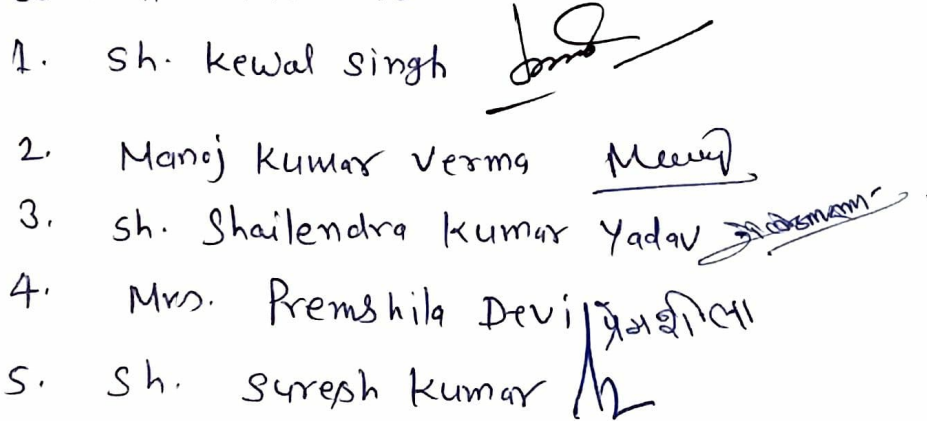 1. Sh. Kewal Singh
2. Manoj Kumar Verma
3. Sh. Shailendra Kumar Yadav
4. Mrs. Premshila Devi प्रेमशीला
5. Sh. Suresh Kumar